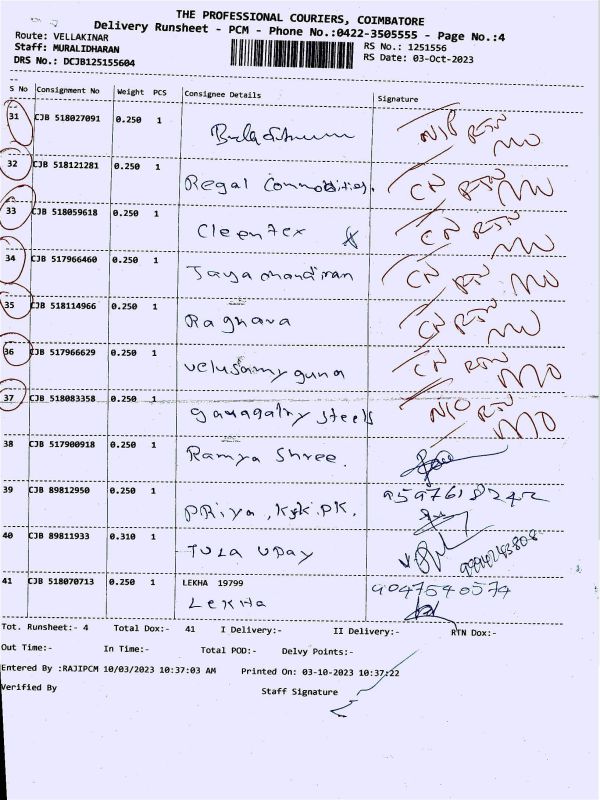 THE PROFESSIONAL COURIERS, COIMBATORE
Delivery Runsheet - PCM - Phone No.:0422-3505555 - Page No.:4
Route: VELLAKINAR
RS No.: 1251556
Staff: MURALIDHARAN
RS Date: 03-Oct-2023
DRS No.: DCJB125155604
S No Consignment No Weight PCS Consignee Details Signature
31 CJB 518027091 0.250 1 RTN
32 CJB 518121281 0.250 1 Regal Commodities. CN RTN
33 CJB 518059618 0.250 1 Cleentex CN RTN
34 CJB 517966460 0.250 1 Jayachandiran CN RTN
35 CJB 518114966 0.250 1 Raghava CN RTN
36 CJB 517966629 0.250 1 velusamy guna CN RTN
37 CJB 518083358 0.250 1 steels RTN
38 CJB 517900918 0.250 1 Ramya Shree.
39 CJB 89812950 0.250 1 PRiya, K.K.PK. 9597618242
40 CJB 89811933 0.310 1 TULA UDAY
41 CJB 518070713 0.250 1 LEKHA 19799 9047540574
LEKHA
Tot. Runsheet:- 4 Total Dox:- 41 I Delivery:- II Delivery:- RTN Dox:-
Out Time:- In Time:- Total POD:- Delvy Points:-
Entered By :RAJIPCM 10/03/2023 10:37:03 AM Printed On: 03-10-2023 10:37:22
Verified By Staff Signature